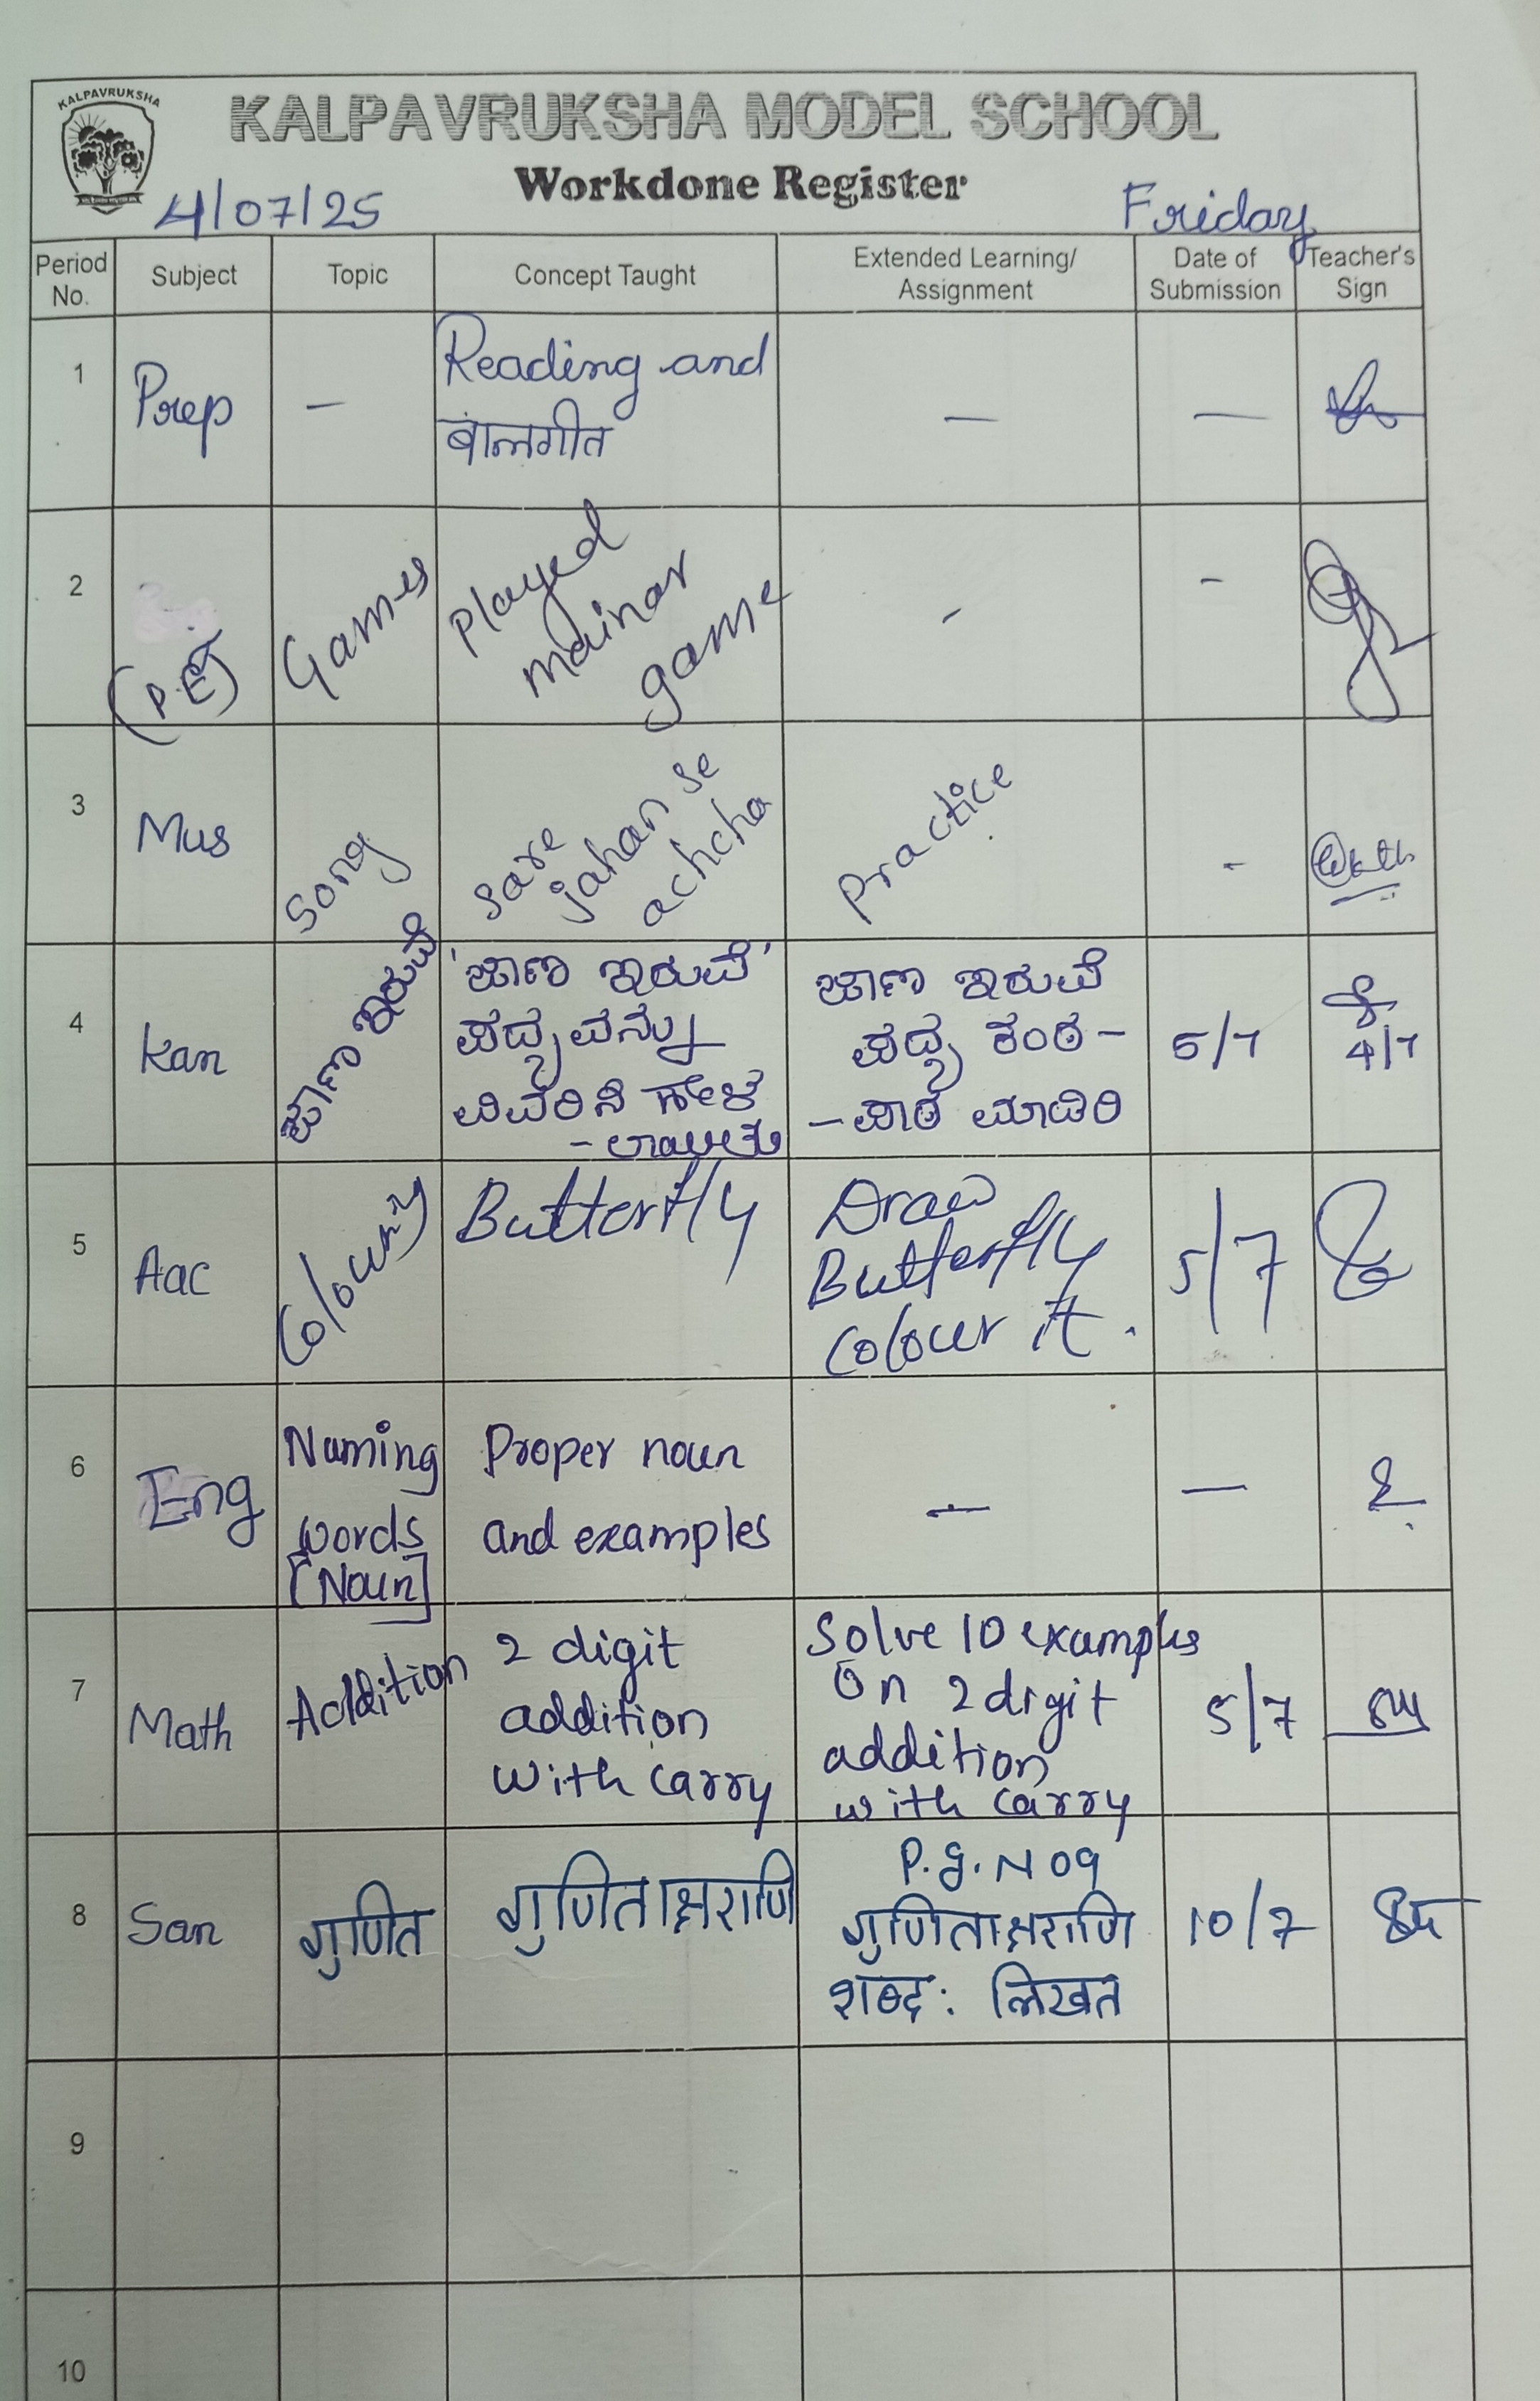 KALPAVRUKSHA
KALPAVRUKSHA MODEL SCHOOL
Workdone Register
4/07/25 Friday
Period No. Subject Topic Concept Taught Extended Learning/ Assignment Date of Submission Teacher's Sign
1 Prep — Reading and — —
बालगीत
2 (P.E) Games Played - -
mainor
game
3 Mus Song Sare Practice -
jahan se
achcha
4 Kan ಜಾಣ ಇರುವೆ 'ಜಾಣ ಇರುವೆ' ಜಾಣ ಇರುವೆ 5/7 4/7
ಪದ್ಯವನ್ನು ಪದ್ಯ ಕಂಠ-
ವಿವರಿಸಿ ಹೇಳ -ಪಾಠ ಮಾಡಿರಿ
-ಲಾಯಿತು
5 Aac Colouring Butterfly Draw 5/7
Butterfly
Colour it.
6 Eng Naming Proper noun — —
words and examples
[Noun]
7 Math Addition 2 digit Solve 10 examples 5/7
addition On 2 digit
with carry addition
with carry
8 San गुणित गुणिताक्षराणि P.g.N 09 10/7
गुणिताक्षराणि
शब्द: लिखत
9
10